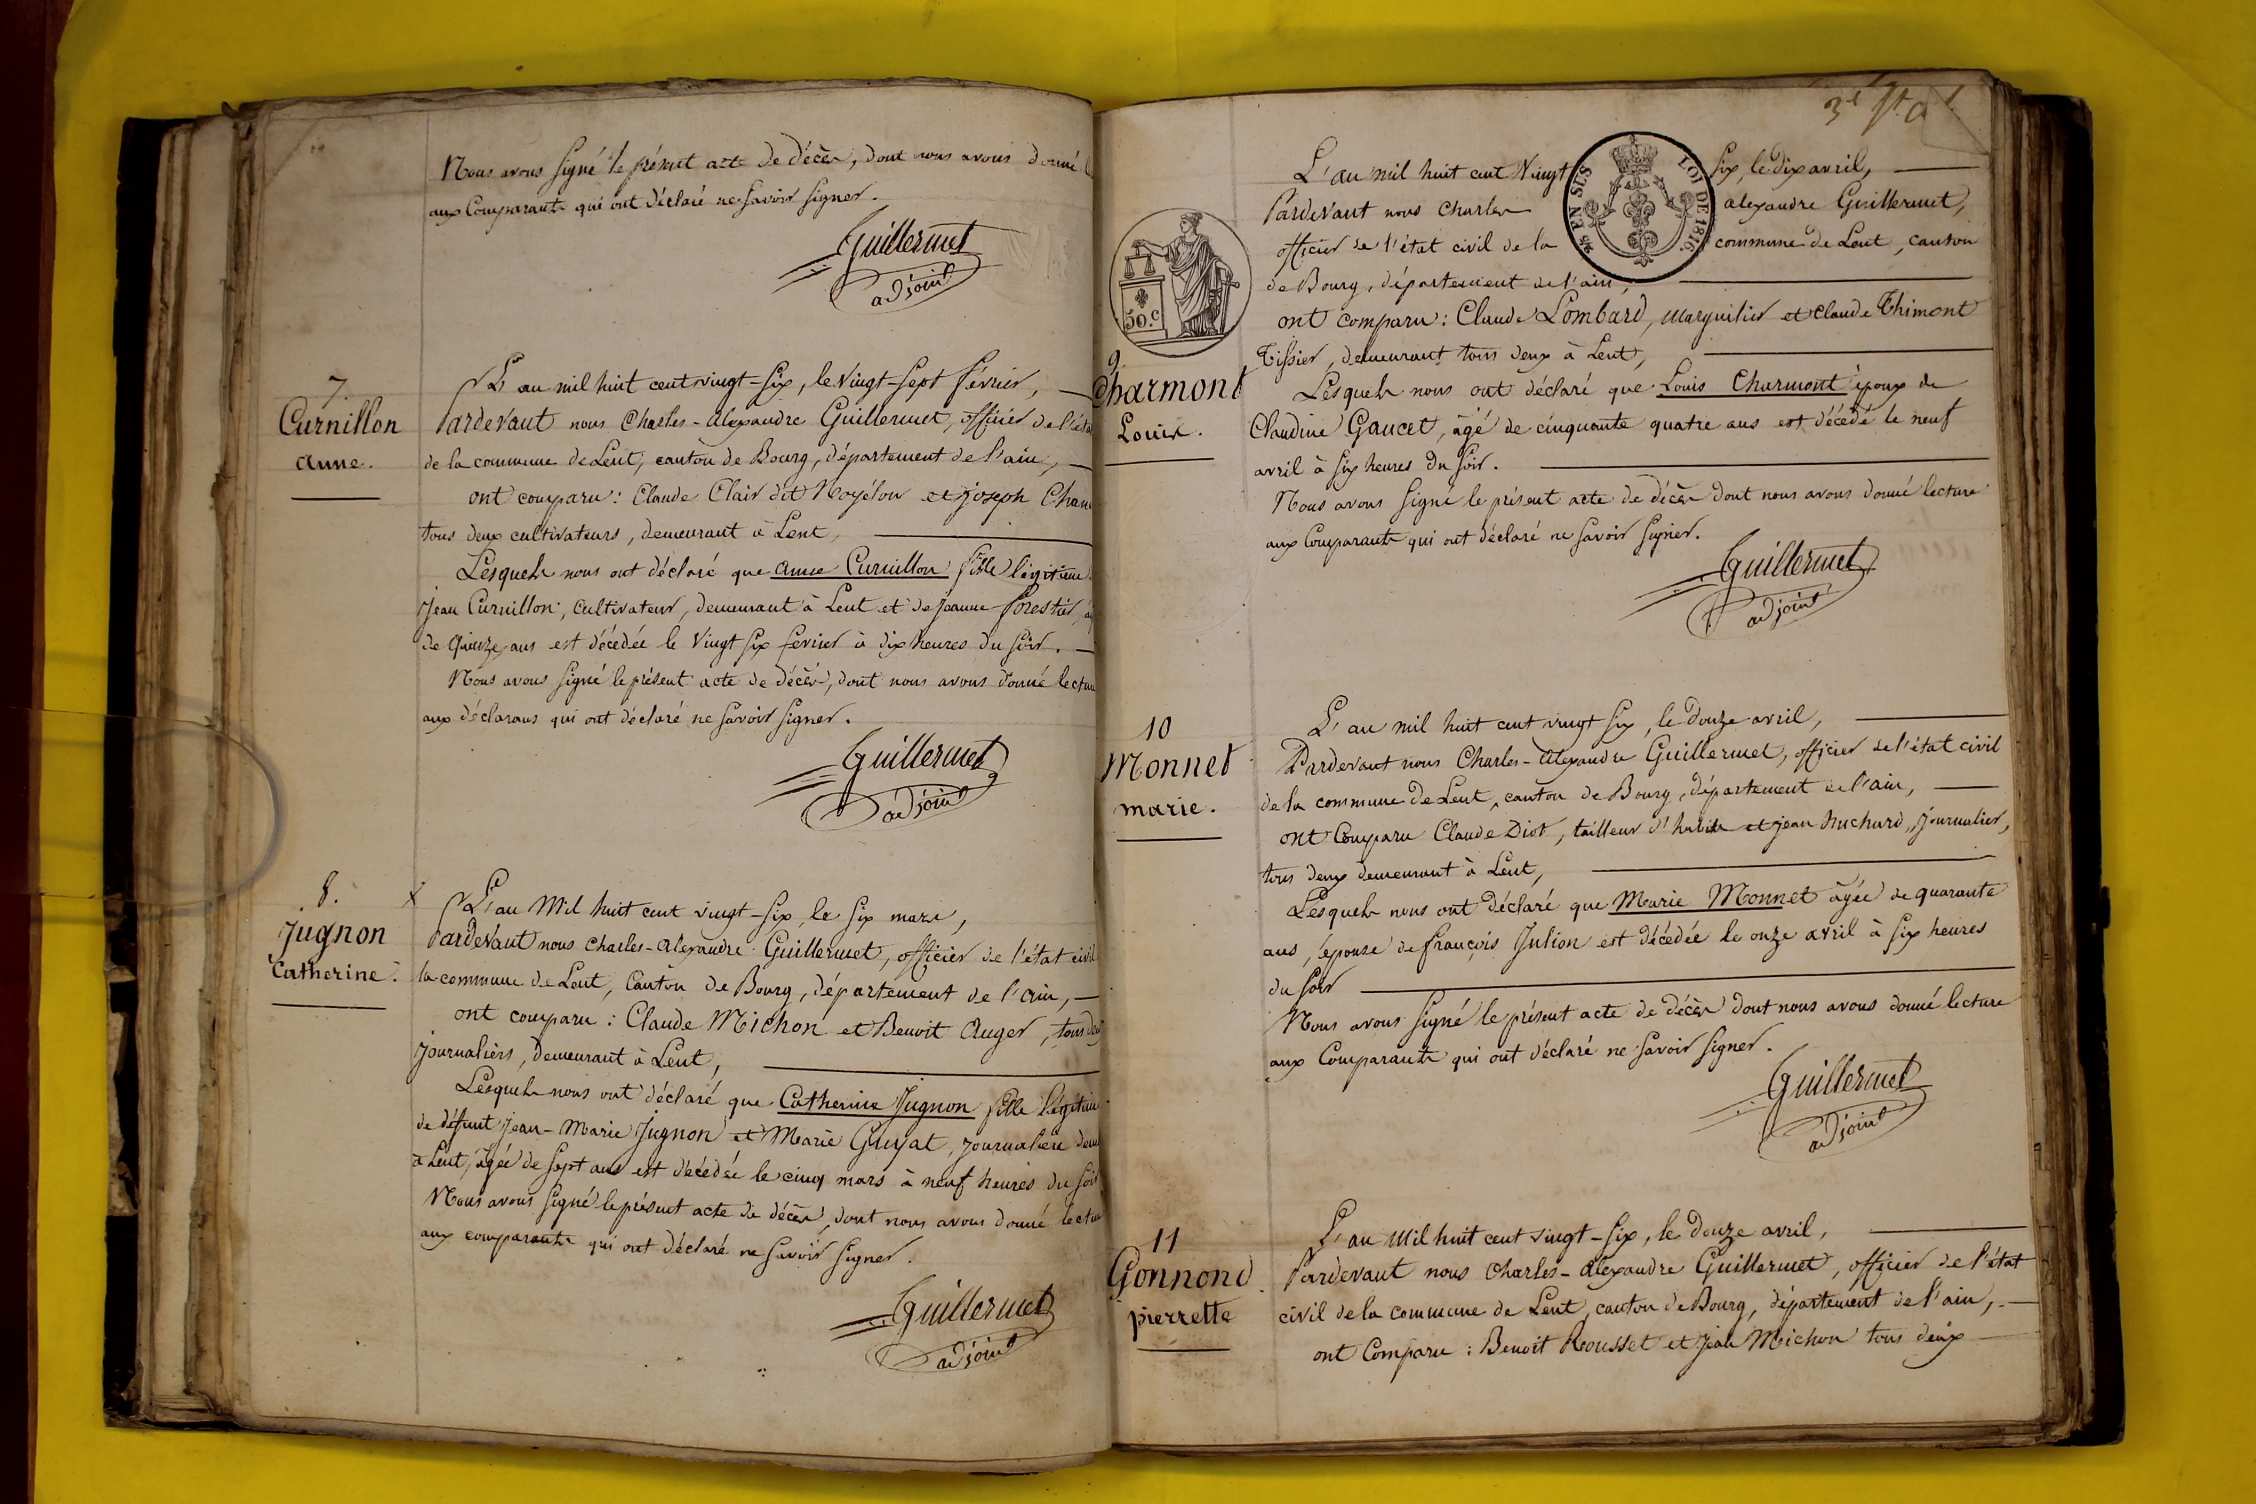 Nous avons signé le présent acte de décès, dont nous avons donné
aux Comparants qui ont déclaré ne savoir signer.
Guillermet
adjoint
7.
Curnillon
anne.
L'an mil huit cent vingt-six, le vingt-sept février,
Pardevant nous Charles-alexandre Guillermet, officier de l'éta
de la commune de Lent, canton de Bourg, département de l'ain,
ont comparu: Claude Clair dit Noyélou et joseph Chan
tous deux cultivateurs, demeurant à Lent,
Lesquels nous ont déclaré que anne Curnillon fille légitime
Jean Curnillon, cultivateur, demeurant à Lent et de jeanne forestier,
de Quinze ans est décédée le vingt six fevrier à dix heures du soir.
Nous avons signé le présent acte de décès, dont nous avons donné lectu
aux déclarans qui ont déclaré ne savoir signer.
Guillermet
adjoint
8.
Jugnon
Catherine.
L'an mil huit cent vingt-six, le six mars,
Pardevant nous charles-alexandre Guillermet, officier de l'état civil
la commune de Lent, canton de Bourg, département de l'ain,
ont comparu: Claude Michon et Benoit Auger, tous deu
journaliers, demeurant à Lent,
Lesquels nous ont déclaré que Catherine Jugnon fille légitim
de défunt Jean-Marie Jugnon et Marie Guyat, journalière dem
à Lent, âgée de sept ans est décédée le cinq mars à neuf heures du soir
Nous avons signé le présent acte de décès, dont nous avons donné lectu
aux comparants qui ont déclaré ne savoir signer.
Guillermet
adjoint
L'an mil huit cent vingt six, le dix avril,
Pardevant nous charles alexandre Guillermet,
officier de l'état civil de la commune de Lent, canton
de Bourg, département de l'ain,
EN SUS LOI DE 1816.
50.c
ont comparu: Claude Lombard, marguilier et claude Thimont
Tissier, demeurant tous deux à Lent,
9.
Charmont
Louis.
Lesquels nous ont déclaré que Louis Charmont époux de
Claudine Gaucet, âgé de cinquante quatre ans est décédé le neuf
avril à six heures du soir.
Nous avons signé le présent acte de décès dont nous avons donné lecture
aux Comparants qui ont déclaré ne savoir signer.
Guillermet
adjoint
10
Monnet
marie.
L'an mil huit cent vingt six, le douze avril,
Pardevant nous Charles-Alexandre Guillermet, officier de l'état civil
de la commune de Lent, canton de Bourg, département de l'ain,
ont Comparu Claude Diot, tailleur d'habits et jean huchard, journalier,
tous deux demeurant à Lent,
Lesquels nous ont déclaré que Marie Monnet âgée de quarante
ans, épouse de françois Julion est décédée le onze avril à six heures
du soir
Nous avons signé le présent acte de décès dont nous avons donné lecture
aux Comparants qui ont déclaré ne savoir signer.
Guillermet
adjoint
11
Gonnond
pierrette
L'an mil huit cent vingt-six, le douze avril,
Pardevant nous charles-alexandre Guillermet, officier de l'état
civil de la commune de Lent, canton de Bourg, département de l'ain,
ont Comparu: Benoit Rousset et Jean Michon tous deux